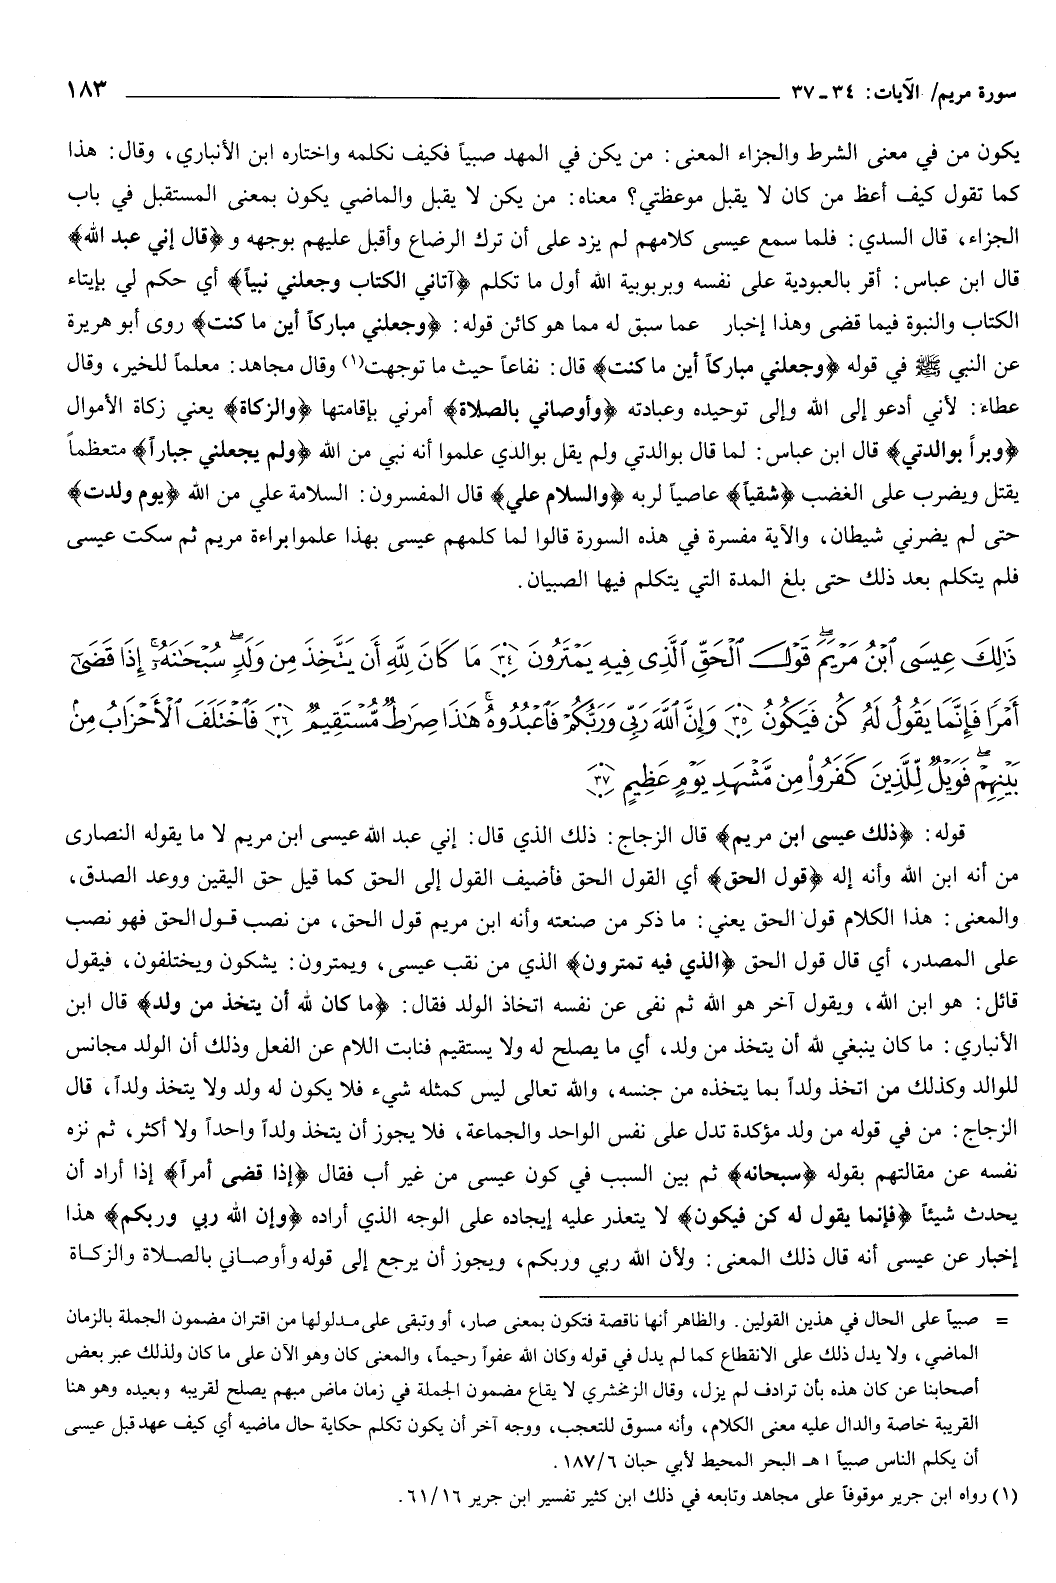 سورة مريم/ الآيات: ٣٤ ـ ٣٧ ١٨٣
يكون من في معنى الشرط والجزاء المعنى: من يكن في المهد صبياً فكيف نكلمه واختاره ابن الأنباري، وقال: هذا
كما تقول كيف أعظ من كان لا يقبل موعظتي؟ معناه: من يكن لا يقبل والماضي يكون بمعنى المستقبل في باب
الجزاء، قال السدي: فلما سمع عيسى كلامهم لم يزد على أن ترك الرضاع وأقبل عليهم بوجهه و ﴿قال إني عبد الله﴾
قال ابن عباس: أقر بالعبودية على نفسه وبربوبية الله أول ما تكلم ﴿آتاني الكتاب وجعلني نبياً﴾ أي حكم لي بإيتاء
الكتاب والنبوة فيما قضى وهذا إخبار عما سبق له مما هو كائن قوله: ﴿وجعلني مباركاً أين ما كنت﴾ روى أبو هريرة
عن النبي ﷺ في قوله ﴿وجعلني مباركاً أين ما كنت﴾ قال: نفاعاً حيث ما توجهت(١) وقال مجاهد: معلماً للخير، وقال
عطاء: لأني أدعو إلى الله وإلى توحيده وعبادته ﴿وأوصاني بالصلاة﴾ أمرني بإقامتها ﴿والزكاة﴾ يعني زكاة الأموال
﴿وبراً بوالدتي﴾ قال ابن عباس: لما قال بوالدتي ولم يقل بوالدي علموا أنه نبي من الله ﴿ولم يجعلني جباراً﴾ متعظماً
يقتل ويضرب على الغضب ﴿شقياً﴾ عاصياً لربه ﴿والسلام علي﴾ قال المفسرون: السلامة علي من الله ﴿يوم ولدت﴾
حتى لم يضرني شيطان، والآية مفسرة في هذه السورة قالوا لما كلمهم عيسى بهذا علموا براءة مريم ثم سكت عيسى
فلم يتكلم بعد ذلك حتى بلغ المدة التي يتكلم فيها الصبيان.
ذَٰلِكَ عِيسَى ٱبْنُ مَرْيَمَ ۖ قَوْلَ ٱلْحَقِّ ٱلَّذِى فِيهِ يَمْتَرُونَ ﴿٣٤﴾ مَا كَانَ لِلَّهِ أَن يَتَّخِذَ مِن وَلَدٍ ۖ سُبْحَٰنَهُۥٓ ۚ إِذَا قَضَىٰٓ
أَمْرًا فَإِنَّمَا يَقُولُ لَهُۥ كُن فَيَكُونُ ﴿٣٥﴾ وَإِنَّ ٱللَّهَ رَبِّى وَرَبُّكُمْ فَٱعْبُدُوهُ ۚ هَٰذَا صِرَٰطٌ مُّسْتَقِيمٌ ﴿٣٦﴾ فَٱخْتَلَفَ ٱلْأَحْزَابُ مِنۢ
بَيْنِهِمْ ۖ فَوَيْلٌ لِّلَّذِينَ كَفَرُوا۟ مِن مَّشْهَدِ يَوْمٍ عَظِيمٍ ﴿٣٧﴾
قوله: ﴿ذلك عيسى ابن مريم﴾ قال الزجاج: ذلك الذي قال: إني عبد الله عيسى ابن مريم لا ما يقوله النصارى
من أنه ابن الله وأنه إله ﴿قول الحق﴾ أي القول الحق فأضيف القول إلى الحق كما قيل حق اليقين ووعد الصدق،
والمعنى: هذا الكلام قول الحق يعني: ما ذكر من صنعته وأنه ابن مريم قول الحق، من نصب قول الحق فهو نصب
على المصدر، أي قال قول الحق ﴿الذي فيه تمترون﴾ الذي من نقب عيسى، ويمترون: يشكون ويختلفون، فيقول
قائل: هو ابن الله، ويقول آخر هو الله ثم نفى عن نفسه اتخاذ الولد فقال: ﴿ما كان لله أن يتخذ من ولد﴾ قال ابن
الأنباري: ما كان ينبغي لله أن يتخذ من ولد، أي ما يصلح له ولا يستقيم فنابت اللام عن الفعل وذلك أن الولد مجانس
للوالد وكذلك من اتخذ ولداً بما يتخذه من جنسه، والله تعالى ليس كمثله شيء فلا يكون له ولد ولا يتخذ ولداً، قال
الزجاج: من في قوله من ولد مؤكدة تدل على نفس الواحد والجماعة، فلا يجوز أن يتخذ ولداً واحداً ولا أكثر، ثم نزه
نفسه عن مقالتهم بقوله ﴿سبحانه﴾ ثم بين السبب في كون عيسى من غير أب فقال ﴿إذا قضى أمراً﴾ إذا أراد أن
يحدث شيئاً ﴿فإنما يقول له كن فيكون﴾ لا يتعذر عليه إيجاده على الوجه الذي أراده ﴿وإن الله ربي وربكم﴾ هذا
إخبار عن عيسى أنه قال ذلك المعنى: ولأن الله ربي وربكم، ويجوز أن يرجع إلى قوله وأوصاني بالصلاة والزكاة
= صبياً على الحال في هذين القولين. والظاهر أنها ناقصة فتكون بمعنى صار، أو وتبقى على مدلولها من اقتران مضمون الجملة بالزمان
الماضي، ولا يدل ذلك على الانقطاع كما لم يدل في قوله وكان الله عفواً رحيماً، والمعنى كان وهو الآن على ما كان ولذلك عبر بعض
أصحابنا عن كان هذه بأن ترادف لم يزل، وقال الزمخشري لا يقاع مضمون الجملة في زمان ماض مبهم يصلح لقريبه وبعيده وهو هنا
القريبة خاصة والدال عليه معنى الكلام، وأنه مسوق للتعجب، ووجه آخر أن يكون تكلم حكاية حال ماضيه أي كيف عهد قبل عيسى
أن يكلم الناس صبياً ا هـ البحر المحيط لأبي حبان ١٨٧/٦.
(١) رواه ابن جرير موقوفاً على مجاهد وتابعه في ذلك ابن كثير تفسير ابن جرير ٦١/١٦.